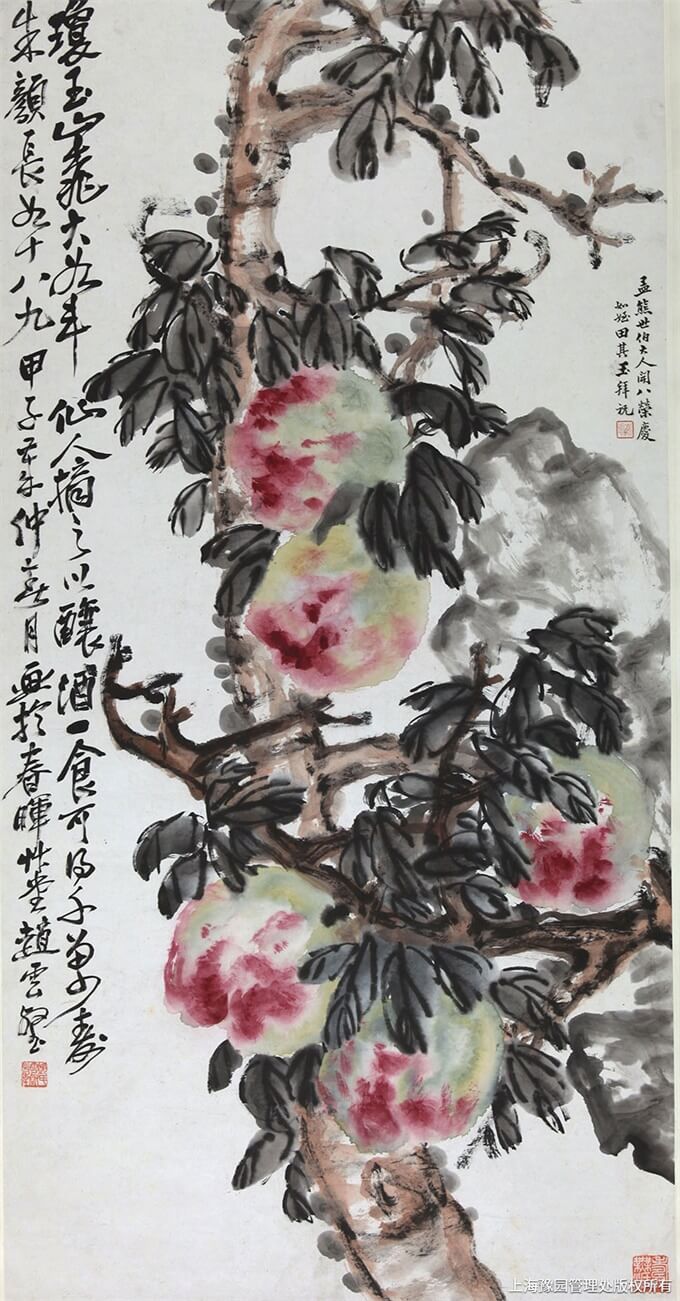 孟熊世伯大人開八榮慶
如姪田其玉拜祝
瓊玉山桃大如斗 仙人摘之以釀酒 一食可得千萬壽
朱顏長如十八九 甲子年仲月画於春暉草堂趙雲壑
上海豫园管理处版权所有